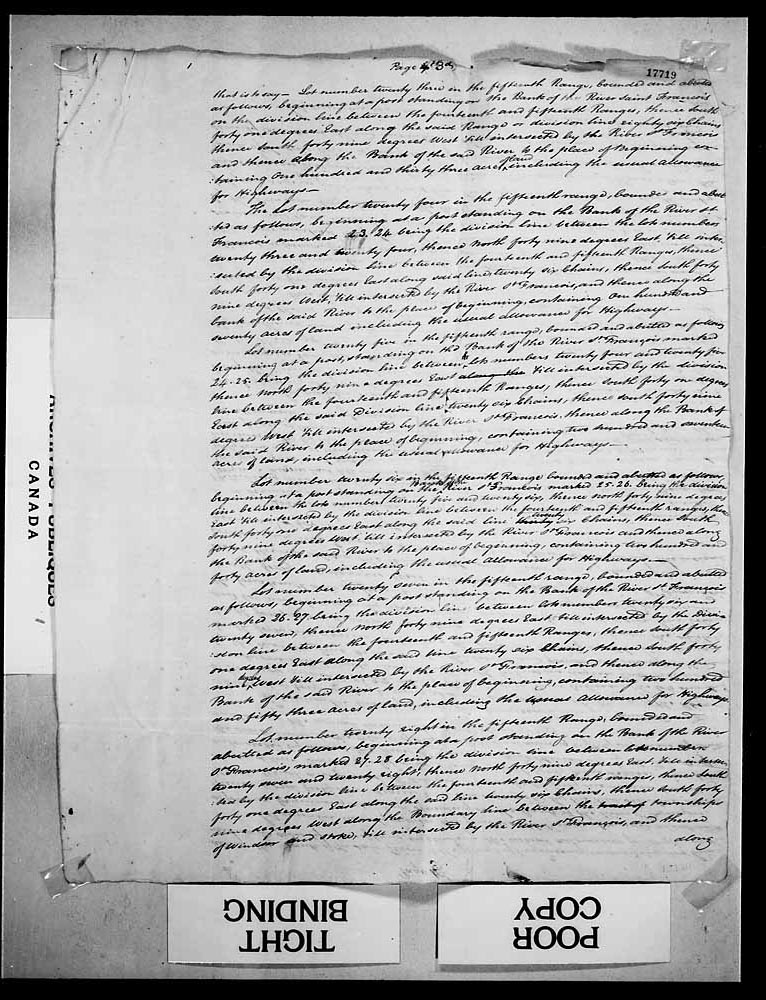 Page 43d
17719
that is to say - Lot number twenty three in the fifteenth Range, bounded and abutted
as follows beginning at a post standing on the Bank of the River Saint Francois
on the division line between the fourteenth and fifteenth Ranges, thence South
forty one degrees East along the said Range or division line eighty six Chains
thence South forty nine degrees West till intersected by the River St Francois
and thence along the Bank of the said River to the place of beginning con
:taining One hundred and thirty three acres of land, including the usual allowance
for Highways -
The Lot number twenty four in the fifteenth range, bounded and abut
ted as follows, beginning at a post standing on the Bank of the River St
Francois marked 23.24 being the division line between the lots numbers
twenty three and twenty four, thence North forty nine degrees East, till inter
:sected by the division line between the fourteenth and fifteenth Ranges, thence
South forty one degrees East along said line twenty six Chains, thence South forty
nine degrees West, till intersected by the River St Francois, and thence along the
bank of the said River to the place of beginning, containing One hundred and
seventy acres of land including the usual allowance for Highways -
Lot number twenty five in the fifteenth range, bounded and abutted as follows
beginning at a post, standing on the Bank of the River St François marked
24-25. being the division line between the lots numbers twenty four and twenty five
thence North forty nine degrees East till intersected by the division
line between the fourteenth and fifteenth Ranges, thence South forty one degrees
East along the said Division line twenty six Chains, thence South forty nine
degrees West till intersected by the River St Francois, thence along the Bank of
the said River to the place of beginning, containing two hundred and seventeen
acres of land, including the usual allowance for Highways -
Lot number twenty six in the fifteenth Range bounded and abutted as follows
beginning at a post standing on the Bank of the River St Francois marked 25.26. being the division
line between the lots number twenty five and twenty six, thence North forty nine degrees
East till intersected by the division line between the fourteenth and fifteenth ranges, thence
South forty one degrees East along the said line twenty six Chains, thence South
forty nine degrees West till intersected by the River St Francois and thence along
the Bank of the said River to the place of beginning, containing two hundred and
forty acres of land, including the usual allowance for Highways -
Lot number twenty Seven in the fifteenth range, bounded and abutted
as follows, beginning at a post standing on the Bank of the River St Francois
marked 26.27 being the division line between lots numbers twenty six and
twenty seven, thence North forty nine degrees East till intersected by the Divi
:sion line between the fourteenth and fifteenth Ranges, thence South forty
one degrees East along the said line twenty six Chains, thence South forty
nine degrees West till intersected by the River St Francois, and thence along the
Bank of the said River to the place of beginning, containing two hundred
and fifty three Acres of land, including the usual allowance for Highways
Lot number twenty eight in the fifteenth Range, bounded and
abutted as follows, beginning at a post standing on the Bank of the River
St Francois, marked 27.28 being the division line between lots numbers
twenty seven and twenty eight, thence North forty nine degrees East, till intersec
:ted by the division line between the fourteenth and fifteenth ranges, thence South
forty one degrees East along the said line twenty six Chains, thence South forty
nine degrees West along the Boundary line between the townships
of Windsor and Stoke, till intersected by the River St François, and thence
along
ARCHIVES PUBLIQUES
CANADA
TIGHT
BINDING
POOR
COPY